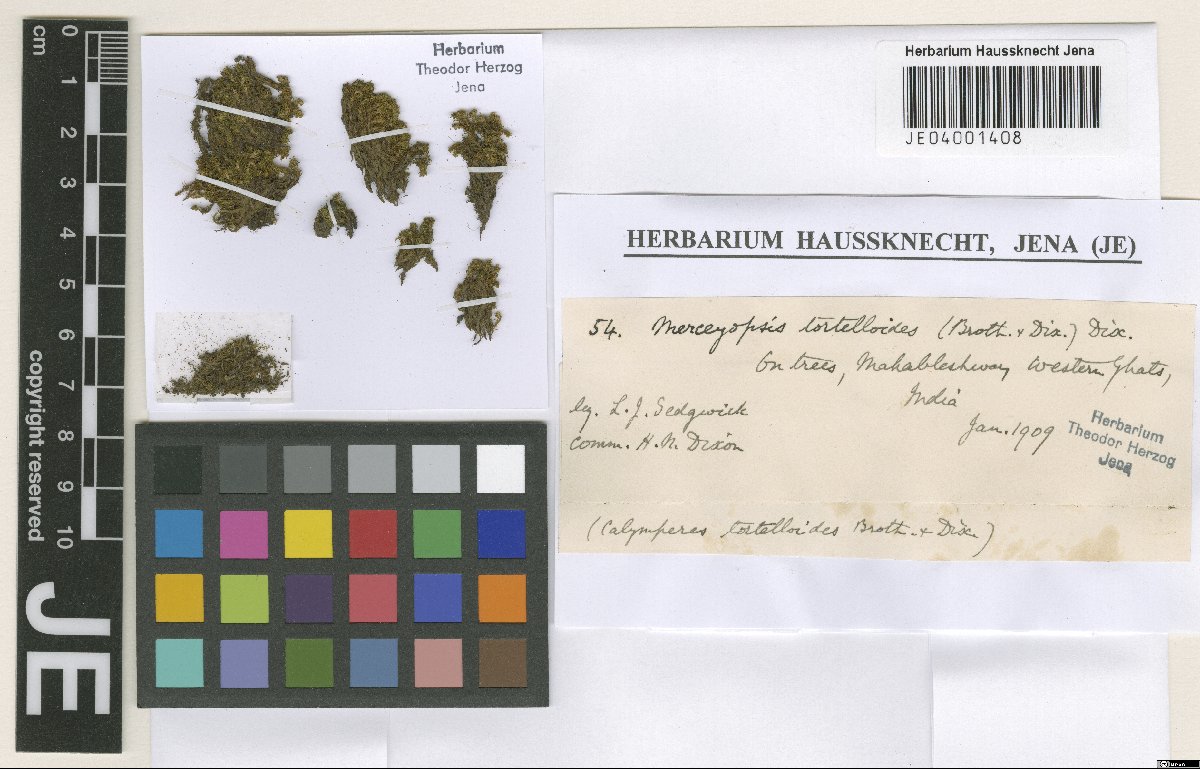 cm
0
1
2
3
4
5
6
7
8
9
10
copyright reserved
JE
Herbarium
Theodor Herzog
Jena
Herbarium Haussknecht Jena
JE04001408
HERBARIUM HAUSSKNECHT, JENA (JE)
54. Merceyopsis tortelloides (Broth. & Dix.) Dix.
On trees, Mahableshwar, Western Ghats,
India
leg. L. J. Sedgwick
Jan. 1909
comm. H. N. Dixon
Herbarium
Theodor Herzog
Jena
(Calymperes tortelloides Broth. & Dix.)